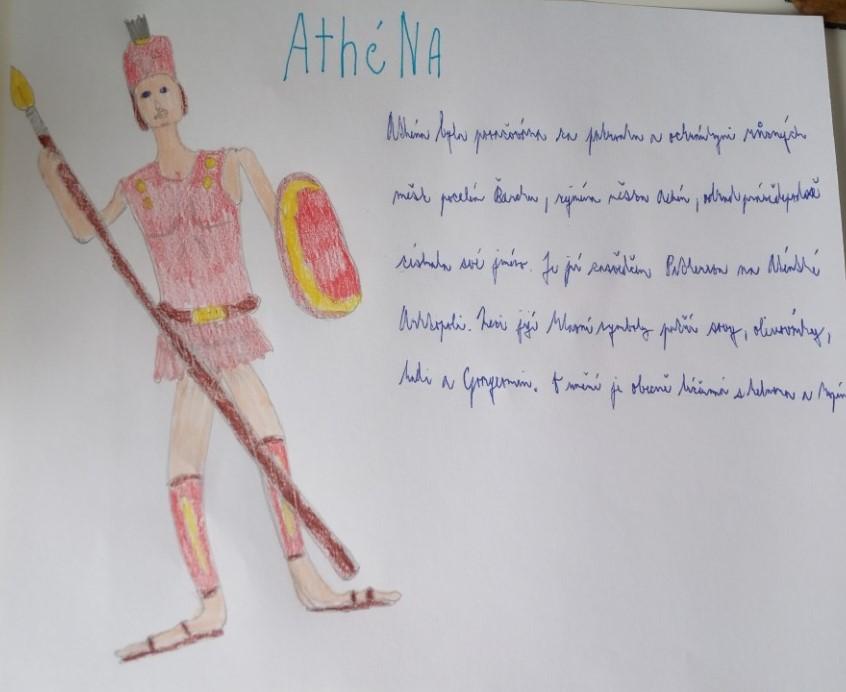 AthéNA
Athéna byla považována za patronku a ochránkyni různých
měst po celém Řecku, zejména města Athén, odkud pravděpodobně
získala své jméno. Je jí zasvěcen Parthenon na Aténské
Akropoli. Mezi její hlavní symboly patří sovy, olivovníky,
hadi a Gorgoneion. V umění je obecně s helmou a kopím